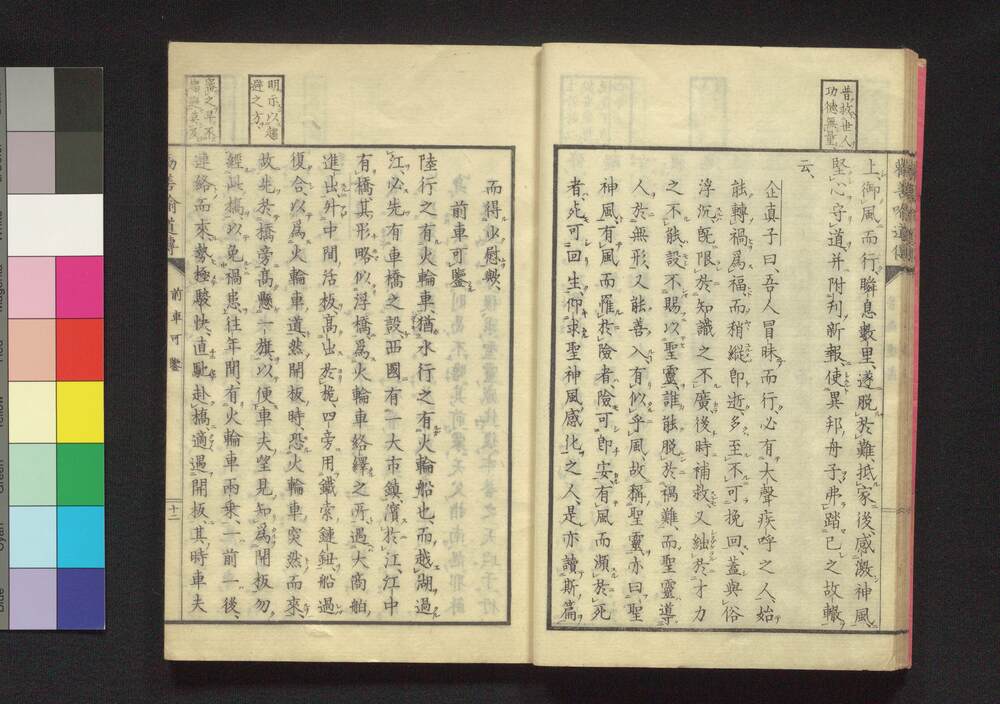 昔救世人
功德無量
上、御風而行、瞬息數里、遂脫於難、抵家後、感激神風、
堅心守道、并附判新報、使異邦舟子、弗踏已之故轍
云、
企眞子曰、吾人冒昧而行、必有大聲疾呼之人、始
能轉禍爲福、而稍縱卽逝、多至不可挽回、蓋與俗
浮沉、旣限於知識之不廣、後時補救、又絀於才力
之不能、設不賜以聖靈、誰能脫於禍難、而聖靈導
人於無形、又能善入、有似乎風、故稱聖靈、亦曰聖
神風、有風而罹於險者、險可卽安、有風而瀕於死
者、死可回生、仰求聖神風、感化之人、是亦讀斯篇、
而得少慰歟、
前車可鑒
明示以趨
避之方、
陸行之有火輪車、猶水行之有火輪船也、而越湖過
江、必先有車橋之設、西國有一大市鎭、濱於江、江中
有橋、其形略似浮橋、爲火輪車絡繹之所過、大商舶
進出外中間、活板高出於桅、四旁用鐵索鏈鈕、船過
復合、以爲火輪車道、然開板時、恐火輪車突然而來、
故先於橋旁高懸一旗、以便車夫望見、知爲開板、勿
經此橋、以免禍患、往年間、有火輪車兩乘、一前一後、
連絡而來、勢極駿快、直馳赴橋、適遇開板、其時車夫
前車可鑒
十二